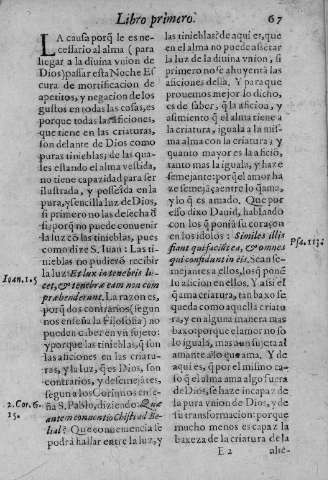 Libro primero. 67
LA causa porq̃ le es ne-
cessario al alma (para
llegar a la diuina vnion de
Dios) passar esta Noche Es
cura de mortificacion de
apetitos, y negacion de los
gustos en todas las cosas, es
porque todas las aficiones,
que tiene en las criaturas,
son delante de Dios como
puras tinieblas; de las qua-
les estando el alma vestida,
no tiene capacidad para ser
ilustrada, y posseida en la
pura, y sencilla luz de Dios,
si primero no las desecha d̃
si: porq̃ no puede conuenir
la luz cõ las tinieblas, pues
como dize S. Iuan: Las ti-
nieblas no pudierõ recibir
Ioan. 1. 5
la luz: Et lux in tenebris lu-
cet, & tenebræ eam non com
prehenderunt. La razon es,
porq̃ dos contrarios (segun
nos enseña la Filosofia) no
pueden caber en vn sujeto:
y porque las tinieblas, q̃ son
las aficiones en las criatu-
ras, y la luz, q̃ es Dios, son
contrarios, y desemejãtes,
segun a los Corintios en se-
2. Cor. 6.
15.
ña S. Pablo, diziendo: Quæ
autem conuentio Christi ad Be-
lial? Que conueniencia se
podrà hallar entre la luz, y
las tinieblas? de aqui es, que
en el alma no puede assẽtar
la luz de la diuina vnion, si
primero no se ahuyentã las
aficiones della. Y para que
prouemos mejor lo dicho,
es de saber, q̃ la aficion, y
asimiento q̃ el alma tiene a
la criatura, iguala a la mis-
ma alma con la criatura; y
quanto mayor es la aficiõ,
tanto mas la iguala, y haze
semejante: porq̃ el amor ha
ze semejãça entre lo q̃ ama,
y lo q̃ es amado. Que por
esso dixo Dauid, hablando
con los q̃ ponia su coraçon
en los idolos: Similes illis
Psa. 113.
fiant qui faciũt ea, & omnes
qui confidunt in eis. Sean se-
mejantes a ellos, los q̃ ponẽ
su aficion en ellos. Y assi el
q̃ ama criatura, tan baxo se
queda como aquella criatu
ra, y en alguna manera mas
baxo: porque el amor no so
lo iguala, mas aun sujeta al
amante a lo que ama. Y de
aqui es, q̃ por el mismo ca-
so q̃ el alma ama algo fuera
de Dios, se haze incapaz de
la pura vniõ de Dios, y de
su transformacion: porque
mucho menos es capaz la
baxeza de la criatura de la
E 2 alte-